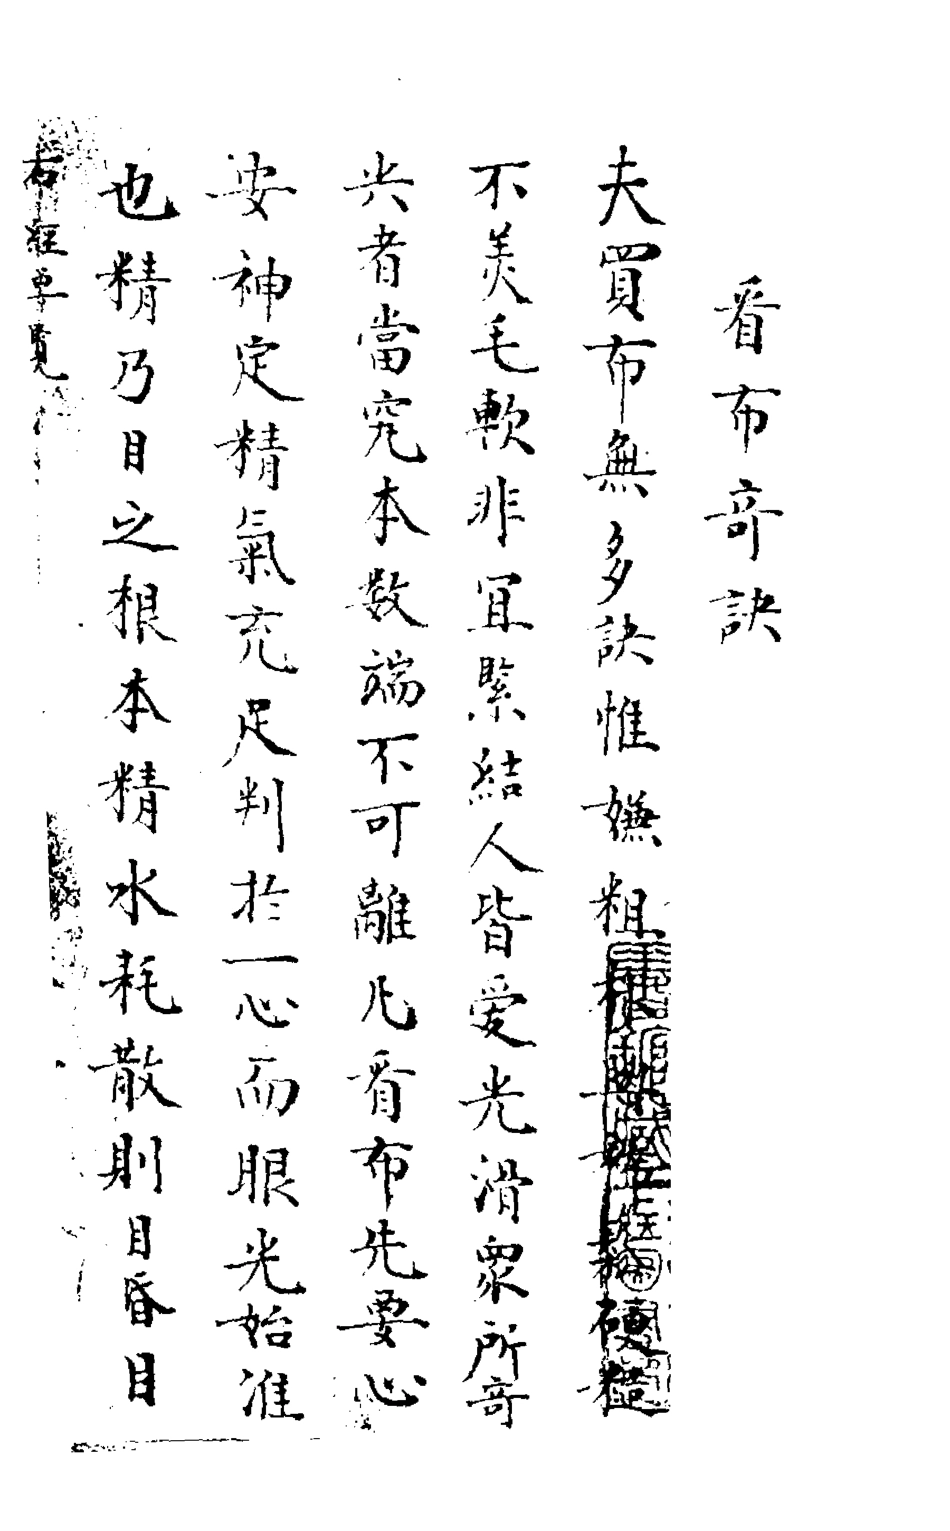 看布奇訣
夫買布無多訣惟嫌粗
不美毛軟非宜緊結人皆愛光滑衆所奇
光者當究本数端不可離凡看布先要心
安神定精氣充足判扵一心而眼光始准
也精乃目之根本精水耗散則目昏目
右經尊覽